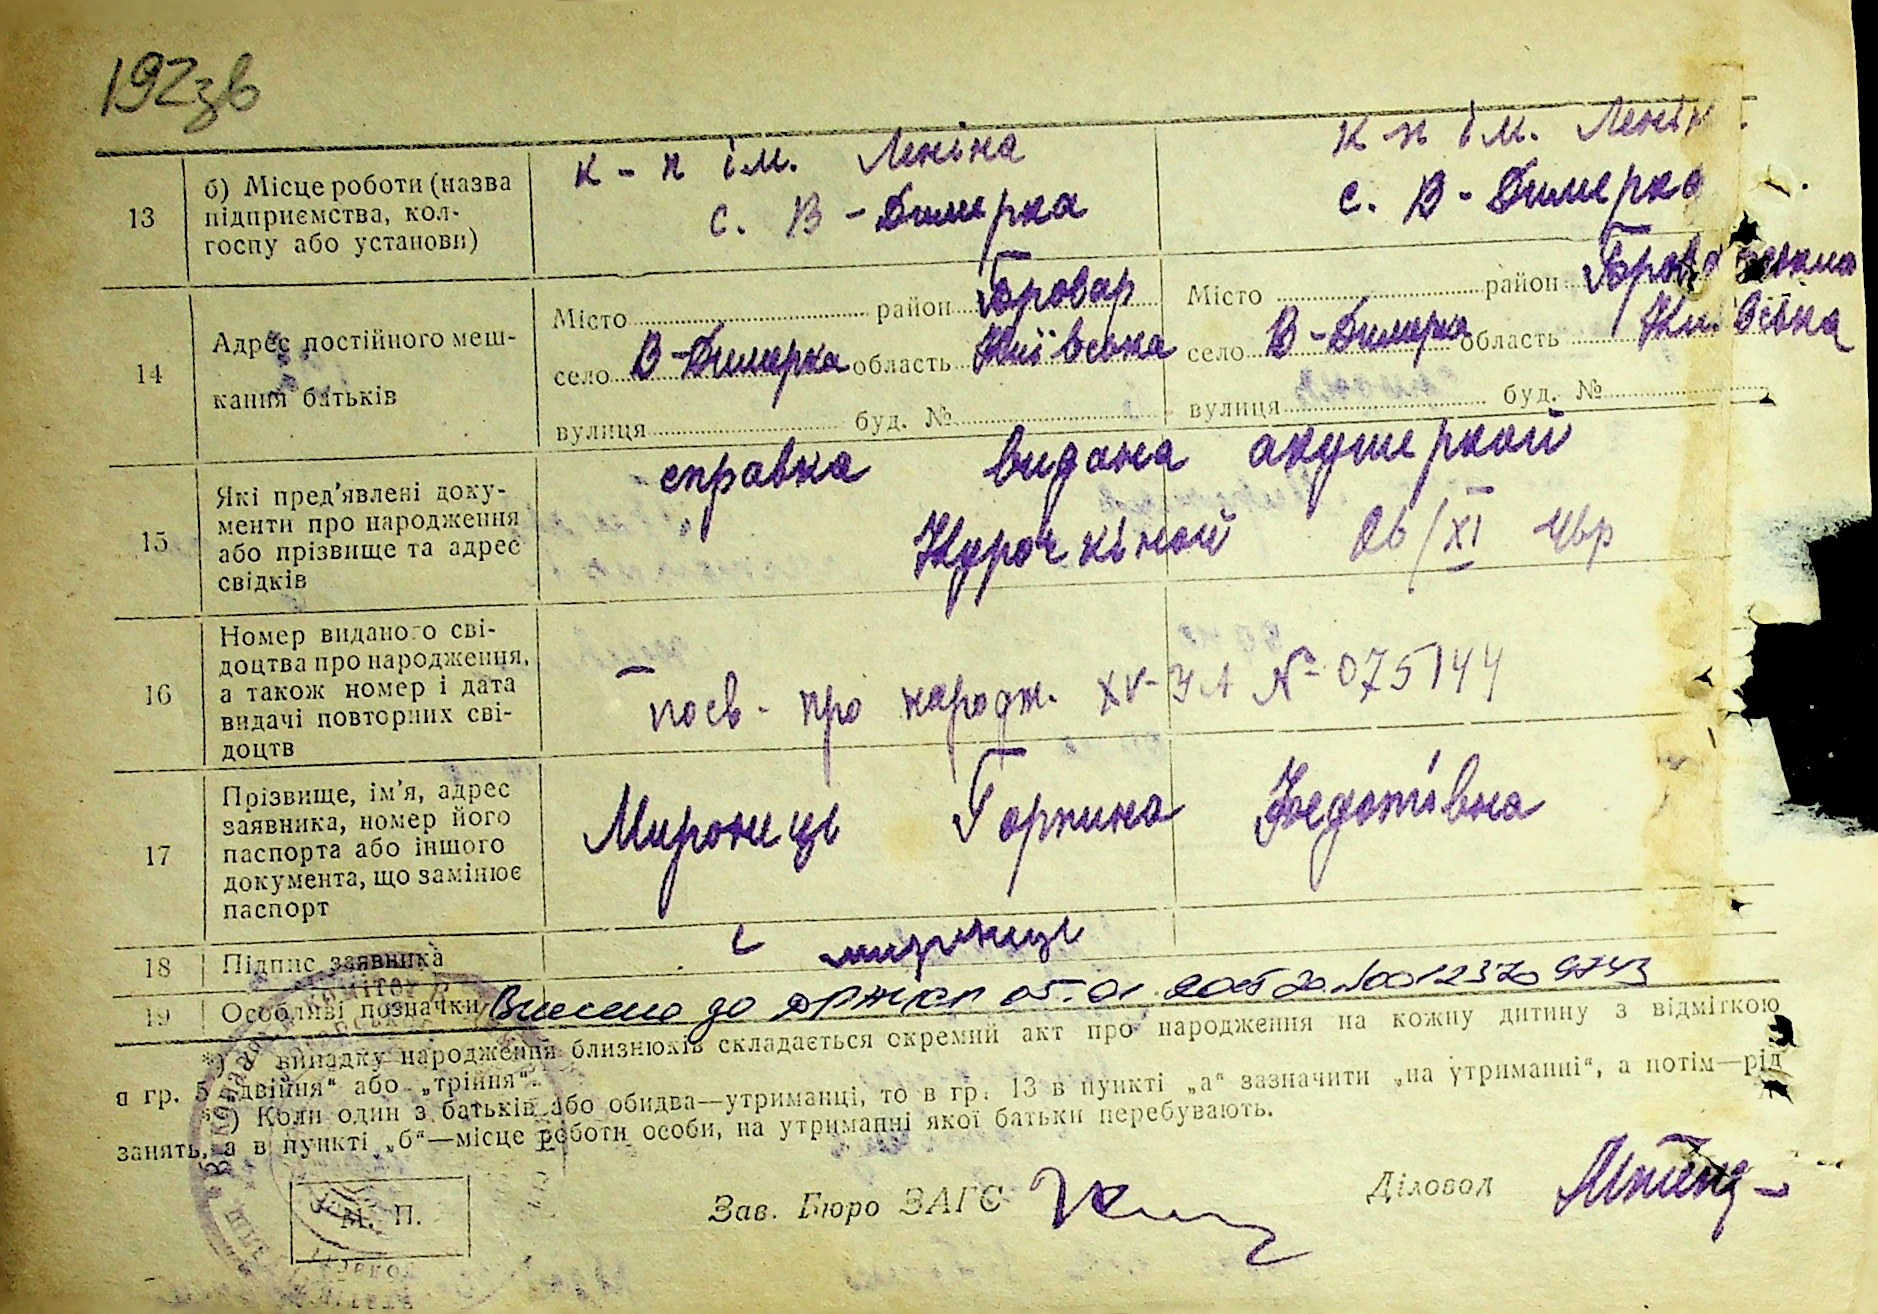 192зв
13 б) Місце роботи (назва підприємства, кол-госпу або установи)
к-п ім. Леніна
с. В-Димерка
к п ім. Лені
с. В-Димерка
14 Адрес постійного меш-
кання батьків
Місто район Бровар
село В-Димерка область Київська
вулиця буд. №
Місто район
село В-Димерка область Київська
вулиця буд. №
15 Які пред'явлені доку-
менти про народження
або прізвище та адрес
свідків
справка видана акушеркой
Курочкіной 26/XI 46р
16 Номер виданого сві-
доцтва про народження,
а також номер і дата
видачі повторних сві-
доцтв
посв. про народж. XV-УА № 075144
17 Прізвище, ім'я, адрес
заявника, номер його
паспорта або іншого
документа, що замінює
паспорт
Миронець Горпина Федотівна
18 Підпис заявника
19 Особливі позначки Внесено до ДРАЦСГ 05.01.
*) випадку народження близнюків складається окремий акт про народження на кожну дитину з відміткою
в гр. 5 „двійня“ або „трійня“.
**) Коли один з батьків або обидва—утриманці, то в гр. 13 в пункті „а“ зазначити „на утриманні“, а потім—рід
занять, а в пункті „б“—місце роботи особи, на утриманні якої батьки перебувають.
М. П.
Зав. Бюро ЗАГС
Діловод